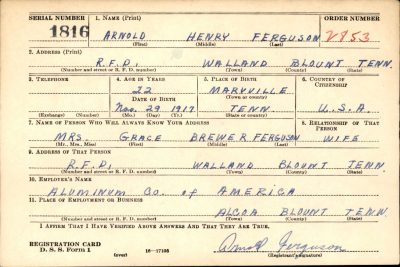 SERIAL NUMBER 1. NAME (Print) ORDER NUMBER
1816 ARNOLD HENRY FERGUSON V853
(First) (Middle) (Last)
2. ADDRESS (Print)
R.F.D. WALLAND BLOUNT TENN.
(Number and street or R. F. D. number) (Town) (County) (State)
3. TELEPHONE 4. AGE IN YEARS 5. PLACE OF BIRTH 6. COUNTRY OF CITIZENSHIP
22 MARYVILLE
DATE OF BIRTH (Town or county)
Nov. 29 1917 TENN U.S.A.
(Exchange) (Number) (Mo.) (Day) (Yr.) (State or country)
7. NAME OF PERSON WHO WILL ALWAYS KNOW YOUR ADDRESS 8. RELATIONSHIP OF THAT PERSON
MRS. GRACE BREWER FERGUSON WIFE
(Mr., Mrs., Miss) (First) (Middle) (Last)
9. ADDRESS OF THAT PERSON
R.F.D. WALLAND BLOUNT TENN
(Number and street or R. F. D. number) (Town) (County) (State)
10. EMPLOYER'S NAME
ALUMINUM CO. of AMERICA
11. PLACE OF EMPLOYMENT OR BUSINESS
ALCOA BLOUNT TENN.
(Number and street or R. F. D. number) (Town) (County) (State)
I AFFIRM THAT I HAVE VERIFIED ABOVE ANSWERS AND THAT THEY ARE TRUE.
REGISTRATION CARD
D. S. S. Form 1 (over) 16-17105 Arnold Ferguson
(Registrant's signature)